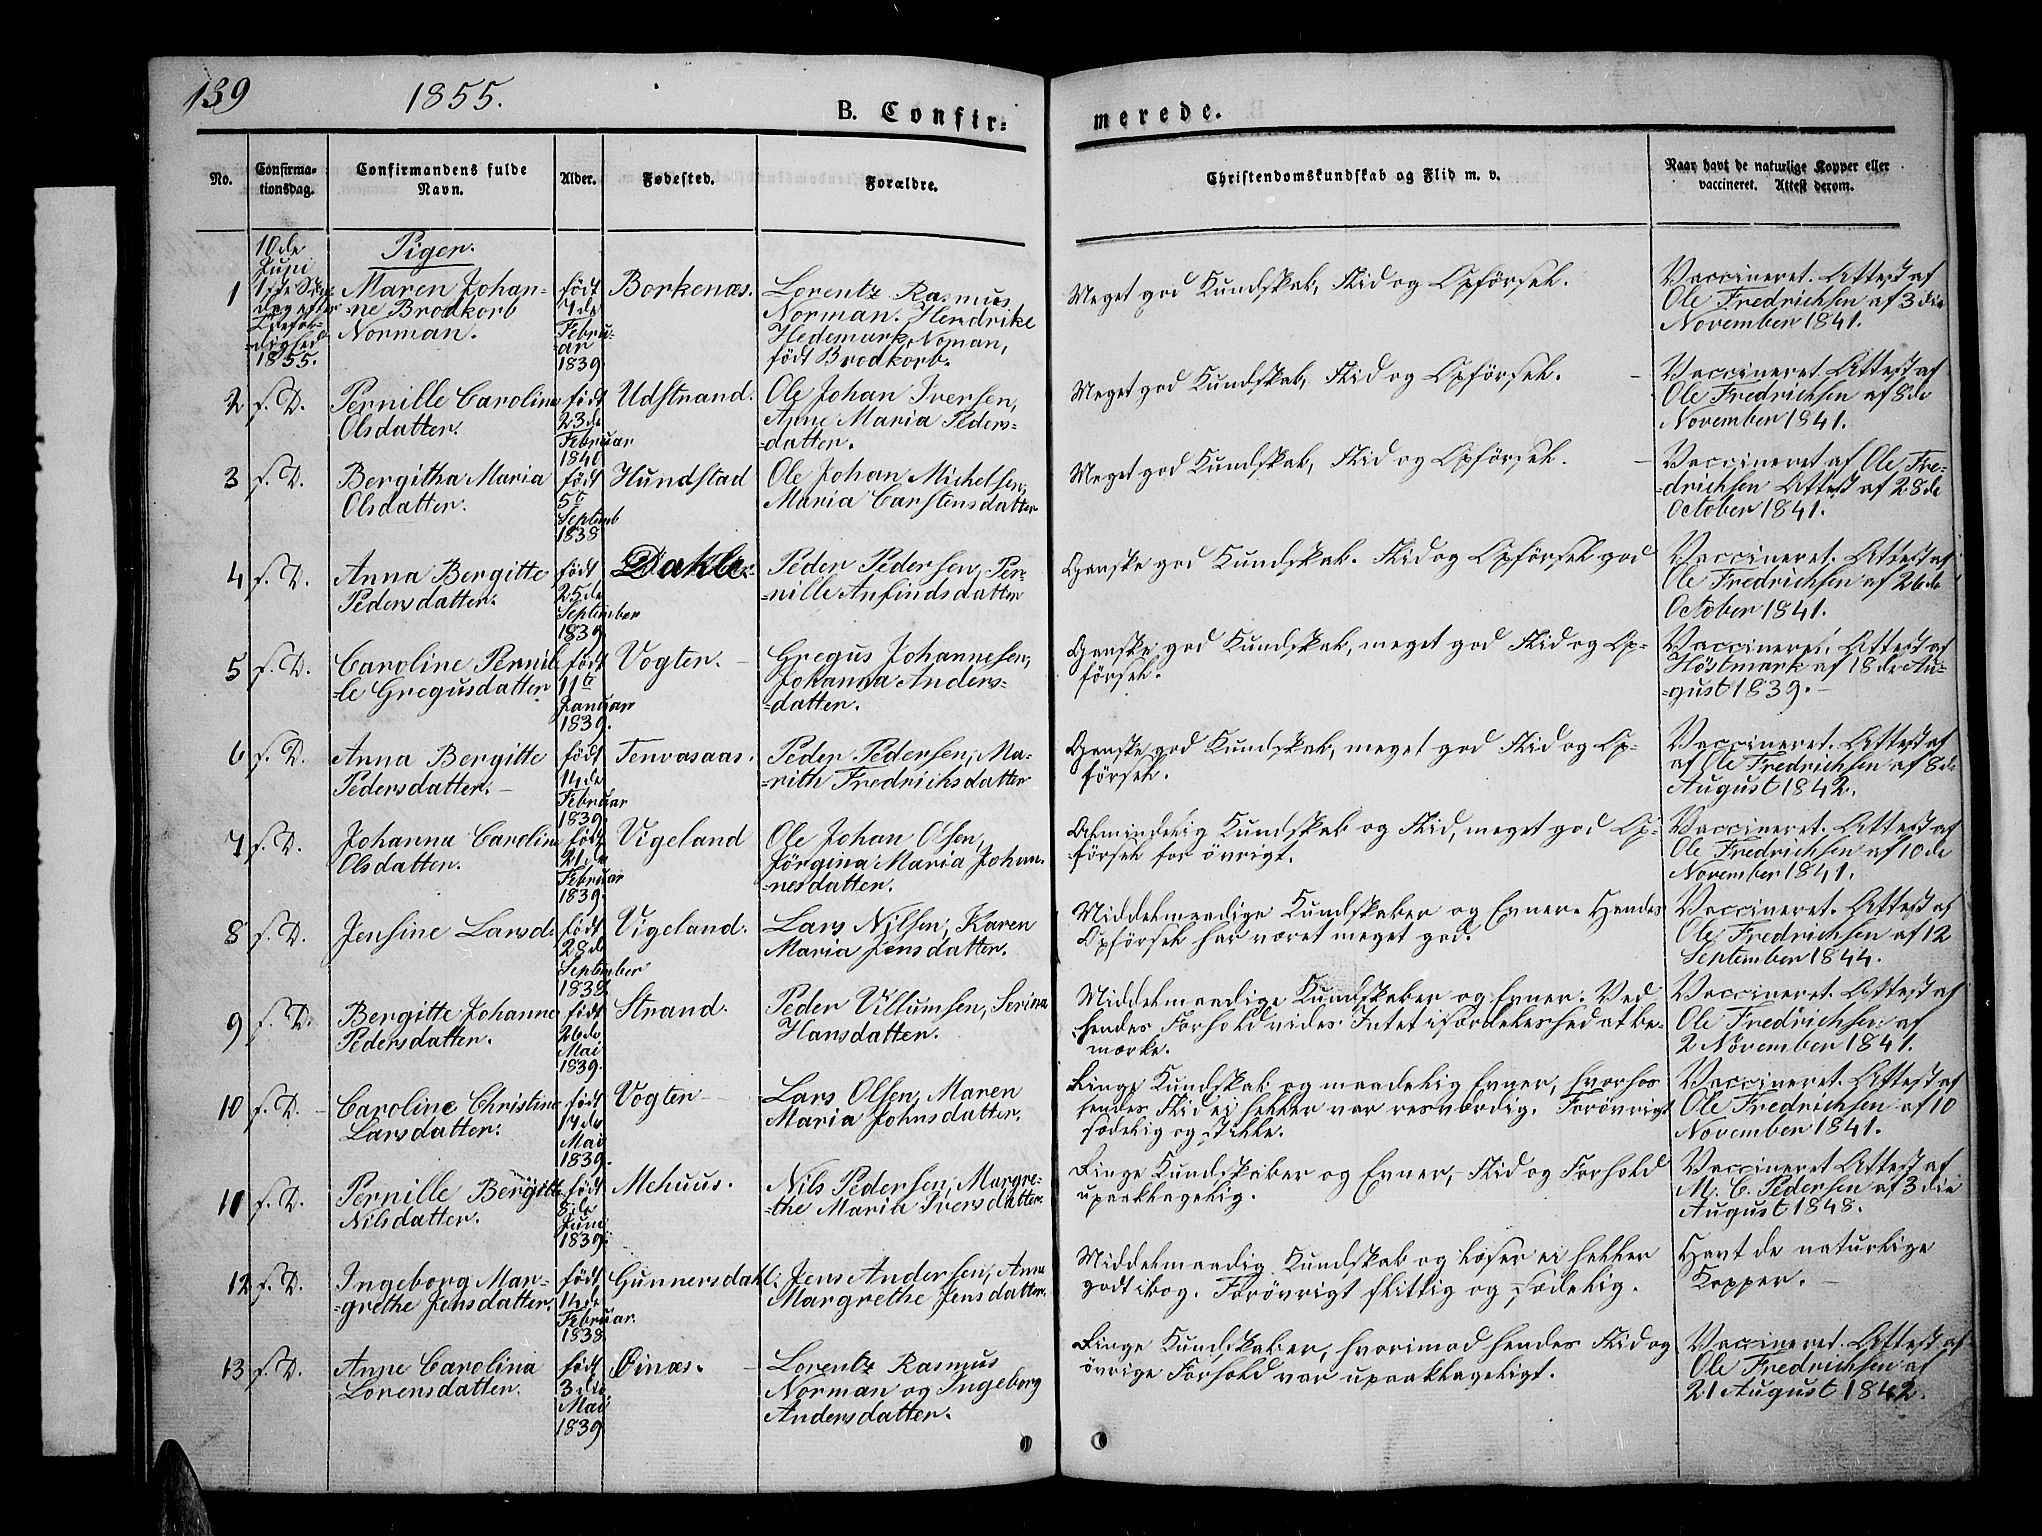 139
1855.
B. Confir-
merede.
No.
Confirma-
tionsdag.
Confirmandens fulde
Navn.
Alder.
Fødested.
Forældre.
Christendomskundskab og Flid m. v.
Naar havt de naturlige Kopper eller
vaccineret. Attest derom.
10de
Juni
1ste Søn-
dag efter
Trefol-
dighed
1855.
Piger.
1
Maren Johan-
-ne Brodkorb
Norman.
født
7de
Febru-
ar
1839.
Borkenæs.
Lorentz Rasmus
Norman. Hendrike
Hedemark Noman,
født Brodkorb.
Meget god Kundskab, Flid og Opførsel.
Vaccineret. Attest af
Ole Fredrichsen af 3die
November 1841.
2
f. D.
Pernille Carolina
Olsdatter.
født
23de
Februar
1840
Udstrand.
Ole Johan Iversen,
Anne Maria Peders-
-datter.
Meget god Kundskab, Flid og Opførsel.
Vaccineret. Attest af
Ole Fredrichsen af 8de
November 1841.
3
f. D.
Bergitha Maria
Olsdatter.
født
5te
Septemb
1838
Hundstad
Ole Johan Michelsen,
Maria Carstensdatter
Meget god Kundskab, Flid og Opførsel.
Vaccineret af Ole Fre-
-drichsen Attest af 28de
October 1841.
4
f. D.
Anna Bergitte
Pedersdatter.
født
25de
September
1839.
Dahle.
Peder Pedersen, Per-
-nille Anfindsdatter
Ganske god Kundskab. Flid og Opførsel god
Vaccineret. Attest af
Ole Fredrichsen af 26de
October 1841.
5
f. D.
Caroline Pernil-
-le Gregusdatter
født
11te
Januar
1839.
Vogter.
Gregus Johannesen,
Johanna Anders-
-datter.
Ganske god Kundskab, meget god Flid og Op-
førsel.
Vaccineret. Attest af
Höstmark af 18de Au-
-gust 1839.
6
f. D.
Anna Bergitte
Pedersdatter.
født
14de
Februar
1839.
Tenvasaas.
Peder Pedersen, Ma-
-rith Fredrichsdatter
Ganske god Kundskab, meget god Flid og Op-
førsel.
Vaccineret. Attest af
af Ole Fredrichsen af 8de
August 1842.
7
f. D.
Johanna Carolina
Olsdatter.
født
21de
Februar
1839.
Vigeland
Ole Johan Olsen,
Jörgina Maria Johan-
-nesdatter.
Almindelig Kundskab og Flid, meget god Op-
førsel for øvrigt.
Vaccineret. Attest af
Ole Fredrichsen af 10de
November 1841.
8
f. D.
Jensine Larsd.
født
28de
September
1838.
Vigeland.
Lars Nilsen, Karen
Maria Jensdatter.
Middelmaadige Kundskaber og Evner. Hendes
Opførsel har været meget god.
Vaccineret. Attest af
Ole Fredrichsen af 12
September 1844.
9
f. D.
Bergitte Johanne
Pedersdatter.
født
26de
Mai
1839.
Strand.
Peder Villumsen, Serina
Hansdatter.
Middelmaadige Kundskaber og Evner. Ved
hendes Forhold vides Intet isærdeleshed at be-
mærke.
Vaccineret. Attest af
Ole Fredrichsen af
2 November 1841.
10
f. D.
Caroline Christine
Larsdatter.
født
14de
Mai
1839.
Vogter
Lars Olsen, Maren
Maria Johnsdatter.
Ringe Kundskab og maadelig Evner, hvorhos
hendes Flid ei heller var rosværdig. Forøvrigt
sædelig og stille.
Vaccineret. Attest af
Ole Fredrichsen af 10
November 1841.
11
f. D.
Pernille Bergitte
Nilsdatter.
født
8de
Juni
1839.
Mehuus.
Nils Pedersen, Margre-
-the Maria Iversdatter.
Ringe Kundskaber og Evner, Flid og Forhold
upaaklagelig.
Vaccineret Attest af
M. C. Pedersen af 3die
August 1848.
12
f. D.
Ingeborg Mar-
-grethe Jensdatter.
født
14de
Februar
1838.
Gunnersdahl.
Jens Andersen, Anne
Margrethe Jensdatter.
Middelmaadig Kundskab og læser ei heller
godt i bog. Forøvrigt flittig og sædelig.
Havt de naturlige
Kopper.
13
f. D.
Anne Carolina
Lorensdatter.
født
3die
Mai
1839
Öinæs.
Lorentz Rasmus
Norman og Ingeborg
Andersdatter.
Ringe Kundskaber, hvorimod hendes Flid og
øvrige Forhold var upaaklageligt.
Vaccineret. Attest af
Ole Fredrichsen af
21 August 1842.